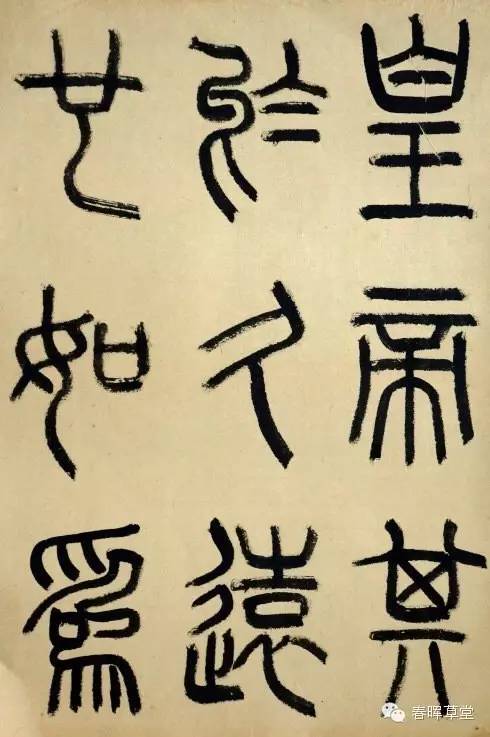 皇帝其
於久遠
也如爲
春晖草堂